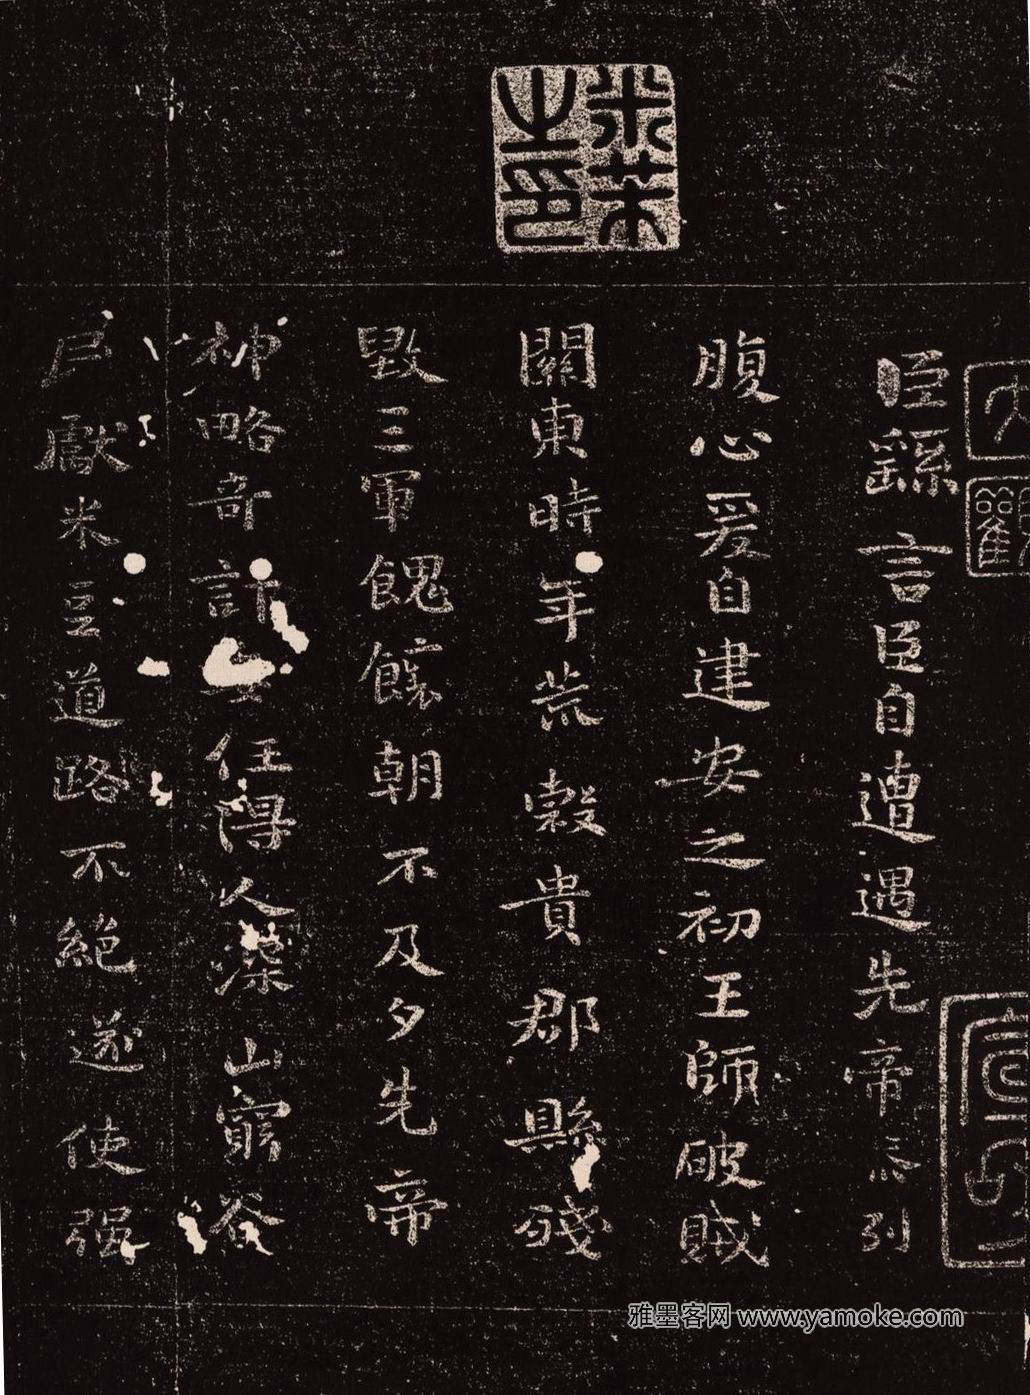 臣繇言臣自遭遇先帝忝列
腹心爰自建安之初王師破賊
關東時年荒穀貴郡縣殘
毀三軍餽饟朝不及夕先帝
神略奇計委任得人深山窮谷
民獻米豆道路不絕遂使强
米芾之印
大觀
雅墨客网 www.yamoke.com